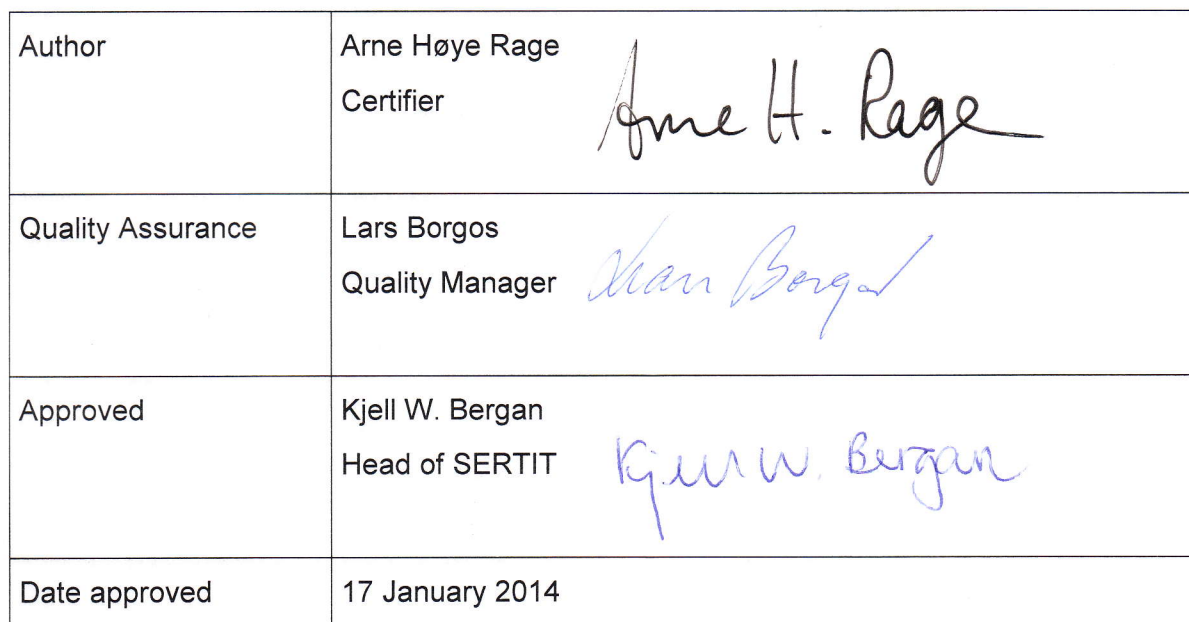 Author
Arne Høye Rage
Certifier
Arne H. Rage
Quality Assurance
Lars Borgos
Quality Manager
Lars Borgos
Approved
Kjell W. Bergan
Head of SERTIT
Kjell W. Bergan
Date approved
17 January 2014